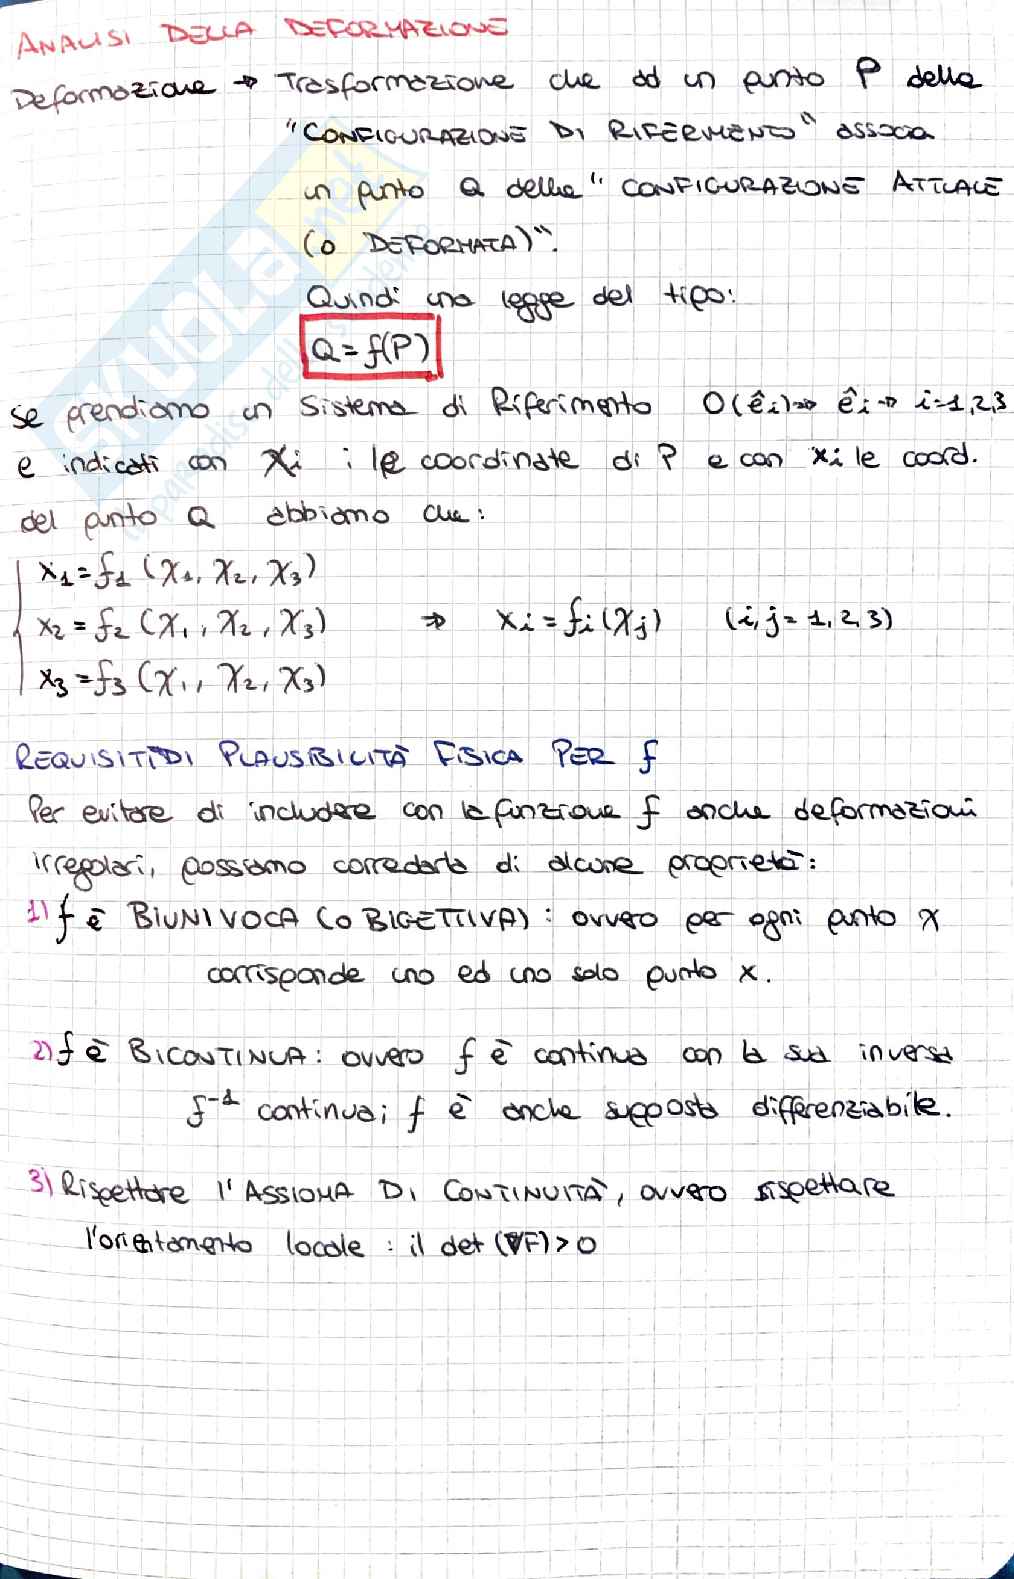 ANALISI DELLA DEFORMAZIONE
Deformazione → Trasformazione che ad un punto P della
"CONFIGURAZIONE DI RIFERIMENTO" associa
un punto Q della "CONFIGURAZIONE ATTUALE
(O DEFORMATA)".
Quindi una legge del tipo:
Q = f(P)
se prendiamo un Sistema di Riferimento O(ê_i) ⇒ ê_i → i=1,2,3
e indicati con X_i i le coordinate di P e con x_i le coord.
del punto Q abbiamo che:
x_1 = f_1 (X_1, X_2, X_3)
x_2 = f_2 (X_1, X_2, X_3) ⇒ x_i = f_i(X_j) (i,j = 1,2,3)
x_3 = f_3 (X_1, X_2, X_3)
REQUISITI DI PLAUSIBILITÀ FISICA PER f
Per evitare di includere con la funzione f anche deformazioni
irregolari, possiamo corredarla di alcune proprietà:
1) f è BIUNIVOCA (O BIGETTIVA): ovvero per ogni punto X
corrisponde uno ed uno solo punto x.
2) f è BICONTINUA: ovvero f è continua con la sua inversa
f⁻¹ continua; f è anche supposta differenziabile.
3) Rispettare l'ASSIOMA DI CONTINUITÀ, ovvero rispettare
l'orientamento locale: il det (∇F) > 0
SKUOLA.net